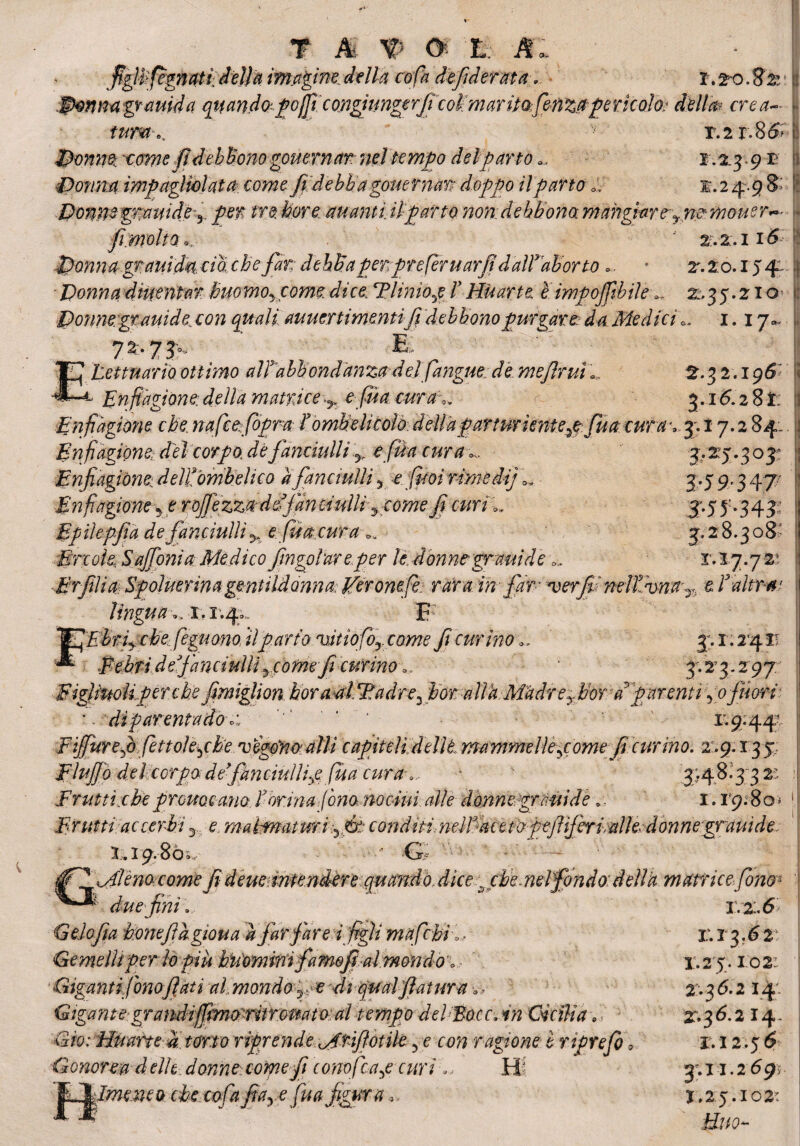 TAVOLA.
figli segnati della imagine della cosa desiderata. 1.20.82
Donna grauida quando possi congiungersi col marito senza pericolo della crea-
tura. 1.21.86
Donna come si debbono gouernar nel tempo del parto. 1.23.91
Donna impagliolata come si debba gouernar doppo il parto. 1.24.98
Donne grauide, per tre hore auanti il parto non debbono mangiare, ne mouer-
si molto. 2.2.116
Donna grauida ciò che far debba per preseruarsi dall'aborto. 2.20.154
Donna diuentar huomo, come dice Plinio, e l'Huarte è impossibile. 2.35.210
Donne grauide con quali auuertimenti si debbono purgare da Medici. 1.17.
72.73. E
ELettuario ottimo all'abbondanza del sangue de mestrui. 2.32.196
Enfiagione della matrice, e sua cura. 3.16.281
Enfiagione che nasce sopra l'ombelicolo della parturiente, e sua cura. 3.17.284
Enfiagione del corpo de fanciulli, e sua cura. 3.25.303
Enfiagione dell'ombelico à fanciulli, e suoi rimedij. 3.59.347
Enfiagione, e rossezza de' fanciulli, come si curi. 3.55.343
Epilepsia de fanciulli, e sua cura. 3.28.308
Ercole Sassonia Medico singolare per le donne grauide. 1.17.72
Ersilia Spoluerina gentildonna Veronese rara in far versi nell'vna, e l'altra
lingua. 1.1.4. F
FEbri, che seguono il parto vitioso, come si curino. 3.1.241
Febri de' fanciulli, come si curino. 3.23.297
Figliuoli perche simiglion hora al Padre, hor alla Madre, hor a' parenti, o fuori
di parentado. 1.9.44
Fissure, ò settole, che vegono alli capiteli delle mammelle, come si curino. 2.9.135
Flusso del corpo de' fanciulli, e sua cura. 3.48.332
Frutti che prouocano l'orina sono nociui alle donne grauide. 1.19.80
Frutti accerbi, e malmaturi, & conditi nell'aceto pestiferi alle donne grauide.
1.19.80. G
GAleno come si deue intendere quando dice, che nel fondo della matrice sono
due sini. 1.2.6
Gelosia honesta gioua à far fare i figli maschi. 1.13.62
Gemelli per lo più huomini famosi al mondo. 1.25.102
Giganti sono stati al mondo, e di qual statura. 2.36.214
Gigante grandissimo ritrouato al tempo del Bocc. in Cicilia. 2.36.214.
Gio: Huarte à torto riprende Aristotile, e con ragione è ripreso. 1.12.56
Gonorea delle donne come si conosca, e curi. H 3.11.269
HImeneo che cosa sia, e sua figura. 1.25.102
Huo-